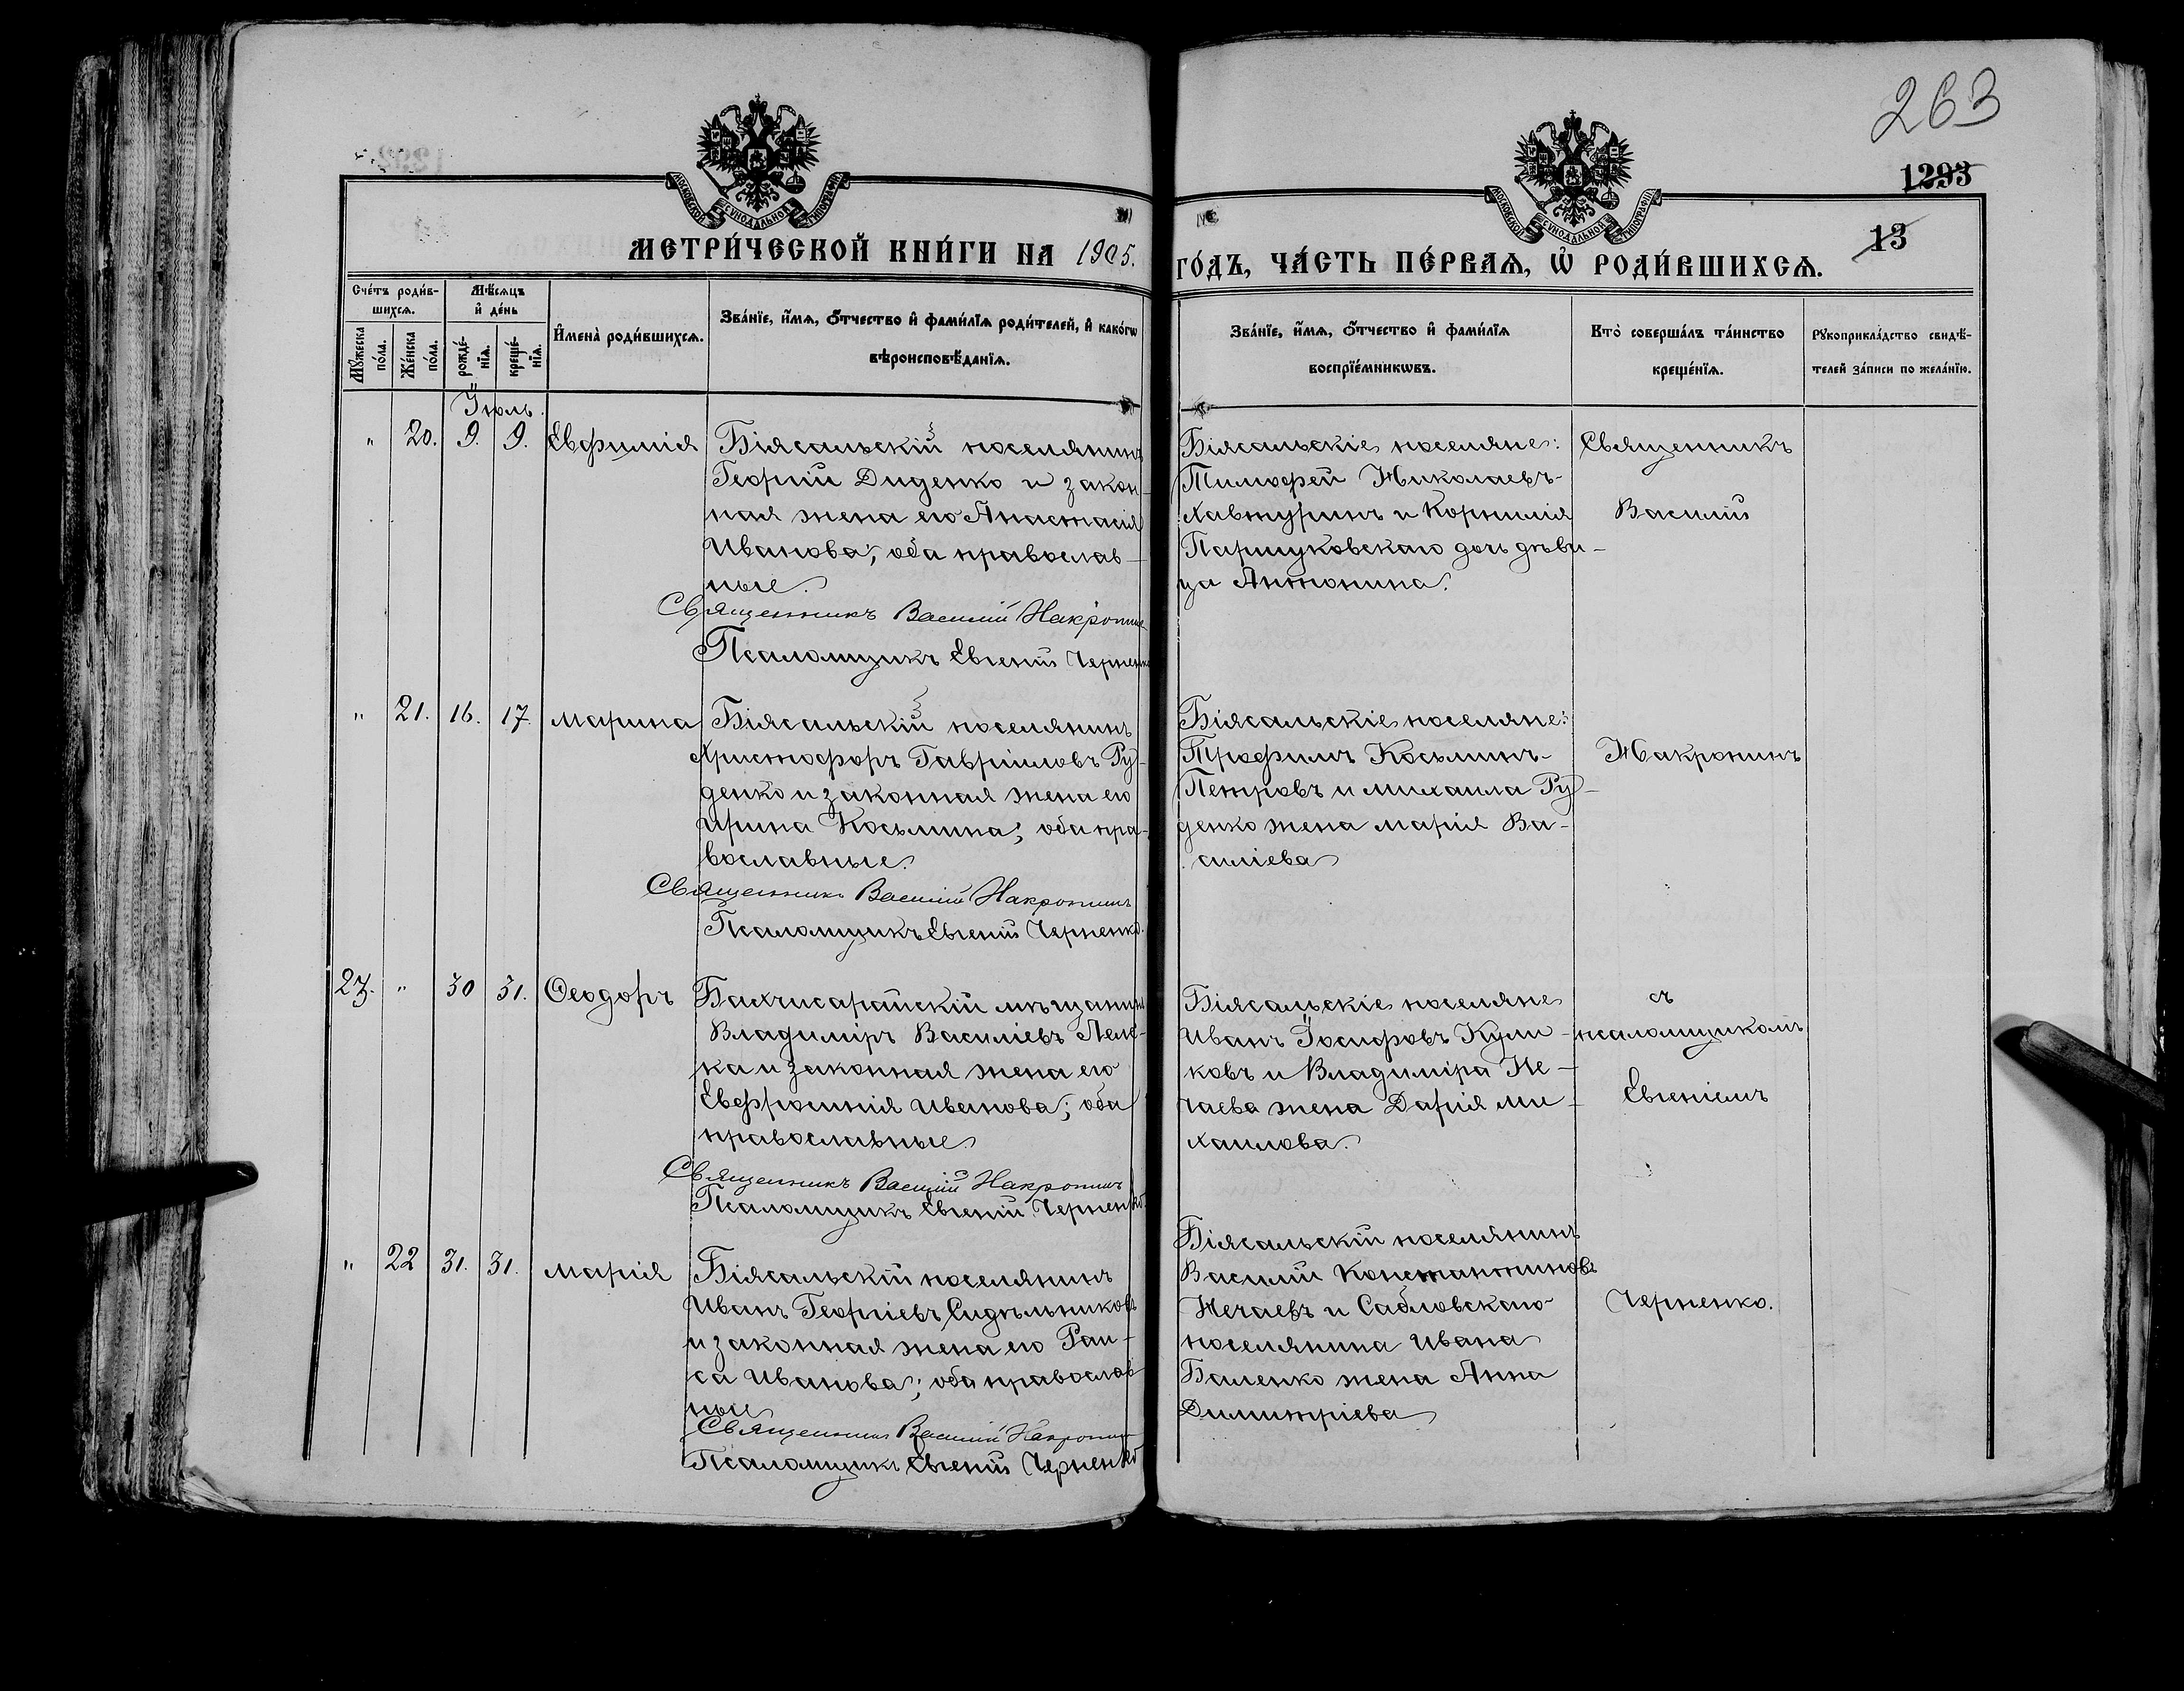 263
1293
13
МЕТРИ́ЧЕСКОЙ КНИ́ГИ НА 1905.
ГО́ДЪ, ЧА́СТЬ ПЕ́РВАѦ, Ѡ҆ РОДИ́ВШИХСѦ.
Сче́тъ роди́в-
шихсѧ.
Мѣ́сѧцъ
и҆ де́нь
Мꙋ́жеска по́ла.
Же́нска по́ла.
рожде́-
нїѧ.
креще́-
нїѧ.
И҆мена̀ роди́вшихсѧ.
Зва́нїе, и҆́мѧ, ѻ҆́тчество и҆ фами́лїѧ роди́телей, и҆ како́гѡ
вѣроисповѣ́данїѧ.
Зва́нїе, и҆́мѧ, ѻ҆́тчество и҆ фами́лїѧ
воспрїе́мникѡвъ.
Кто̀ соверша́лъ та́инство
креще́нїѧ.
Рꙋкоприкла́дство свидѣ́-
телей за́писи по жела́нїю.
Іюль.
" 20. 9. 9. Евфимія
Біясальскій поселянинъ
Георгій Диденко и закон-
ная жена его Анастасія
Иванова; оба православ-
ные.
Священникъ Василій Накропин
Псаломщикъ Евгеній Черненко
Біясальскіе поселяне:
Тимофей Николаевъ
Хавтуринъ и Корнилія
Паршуковскаго дочь дѣви-
ца Антонина.
Священникъ
Василій
" 21. 16. 17. Марина
Біясальскій поселянинъ
Христофоръ Гавріиловъ Ру-
денко и законная жена его
Ирина Косьмина; оба пра-
вославные.
Священникъ Василій Накропинъ
Псаломщикъ Евгеній Черненко.
Біясальскіе поселяне:
Трофимъ Косьминъ
Петровъ и Михаила Ру-
денко жена Марія Ва-
силіева
Накропинъ
23. " 30 31. Ѳеодоръ
Бахчисарайскій мѣщанинъ
Владиміръ Василіевъ
ка и законная жена его
Евфросинія Иванова; оба
православные
Священникъ Василій Накропинъ
Псаломщикъ Евгеній Черненко
Біясальскіе поселяне
Иванъ Іосифовъ Кули-
ковъ и Владиміра Не-
чаева жена Дарія Ми-
хаилова.
съ
псаломщикомъ
Евгеніемъ
" 22 31. 31. Марія
Біясальскій поселянинъ
Иванъ Георгіевъ Сидѣльниковъ
и законная жена его Раи-
са Иванова; оба православ
ные
Священникъ Василій Накропин
Псаломщикъ Евгеній Черненко
Біясальскій поселянинъ
Василій Константиновъ
Нечаевъ и Сабловскаго
поселянина Ивана
Баленко жена Анна
Димитріева
Черненко.